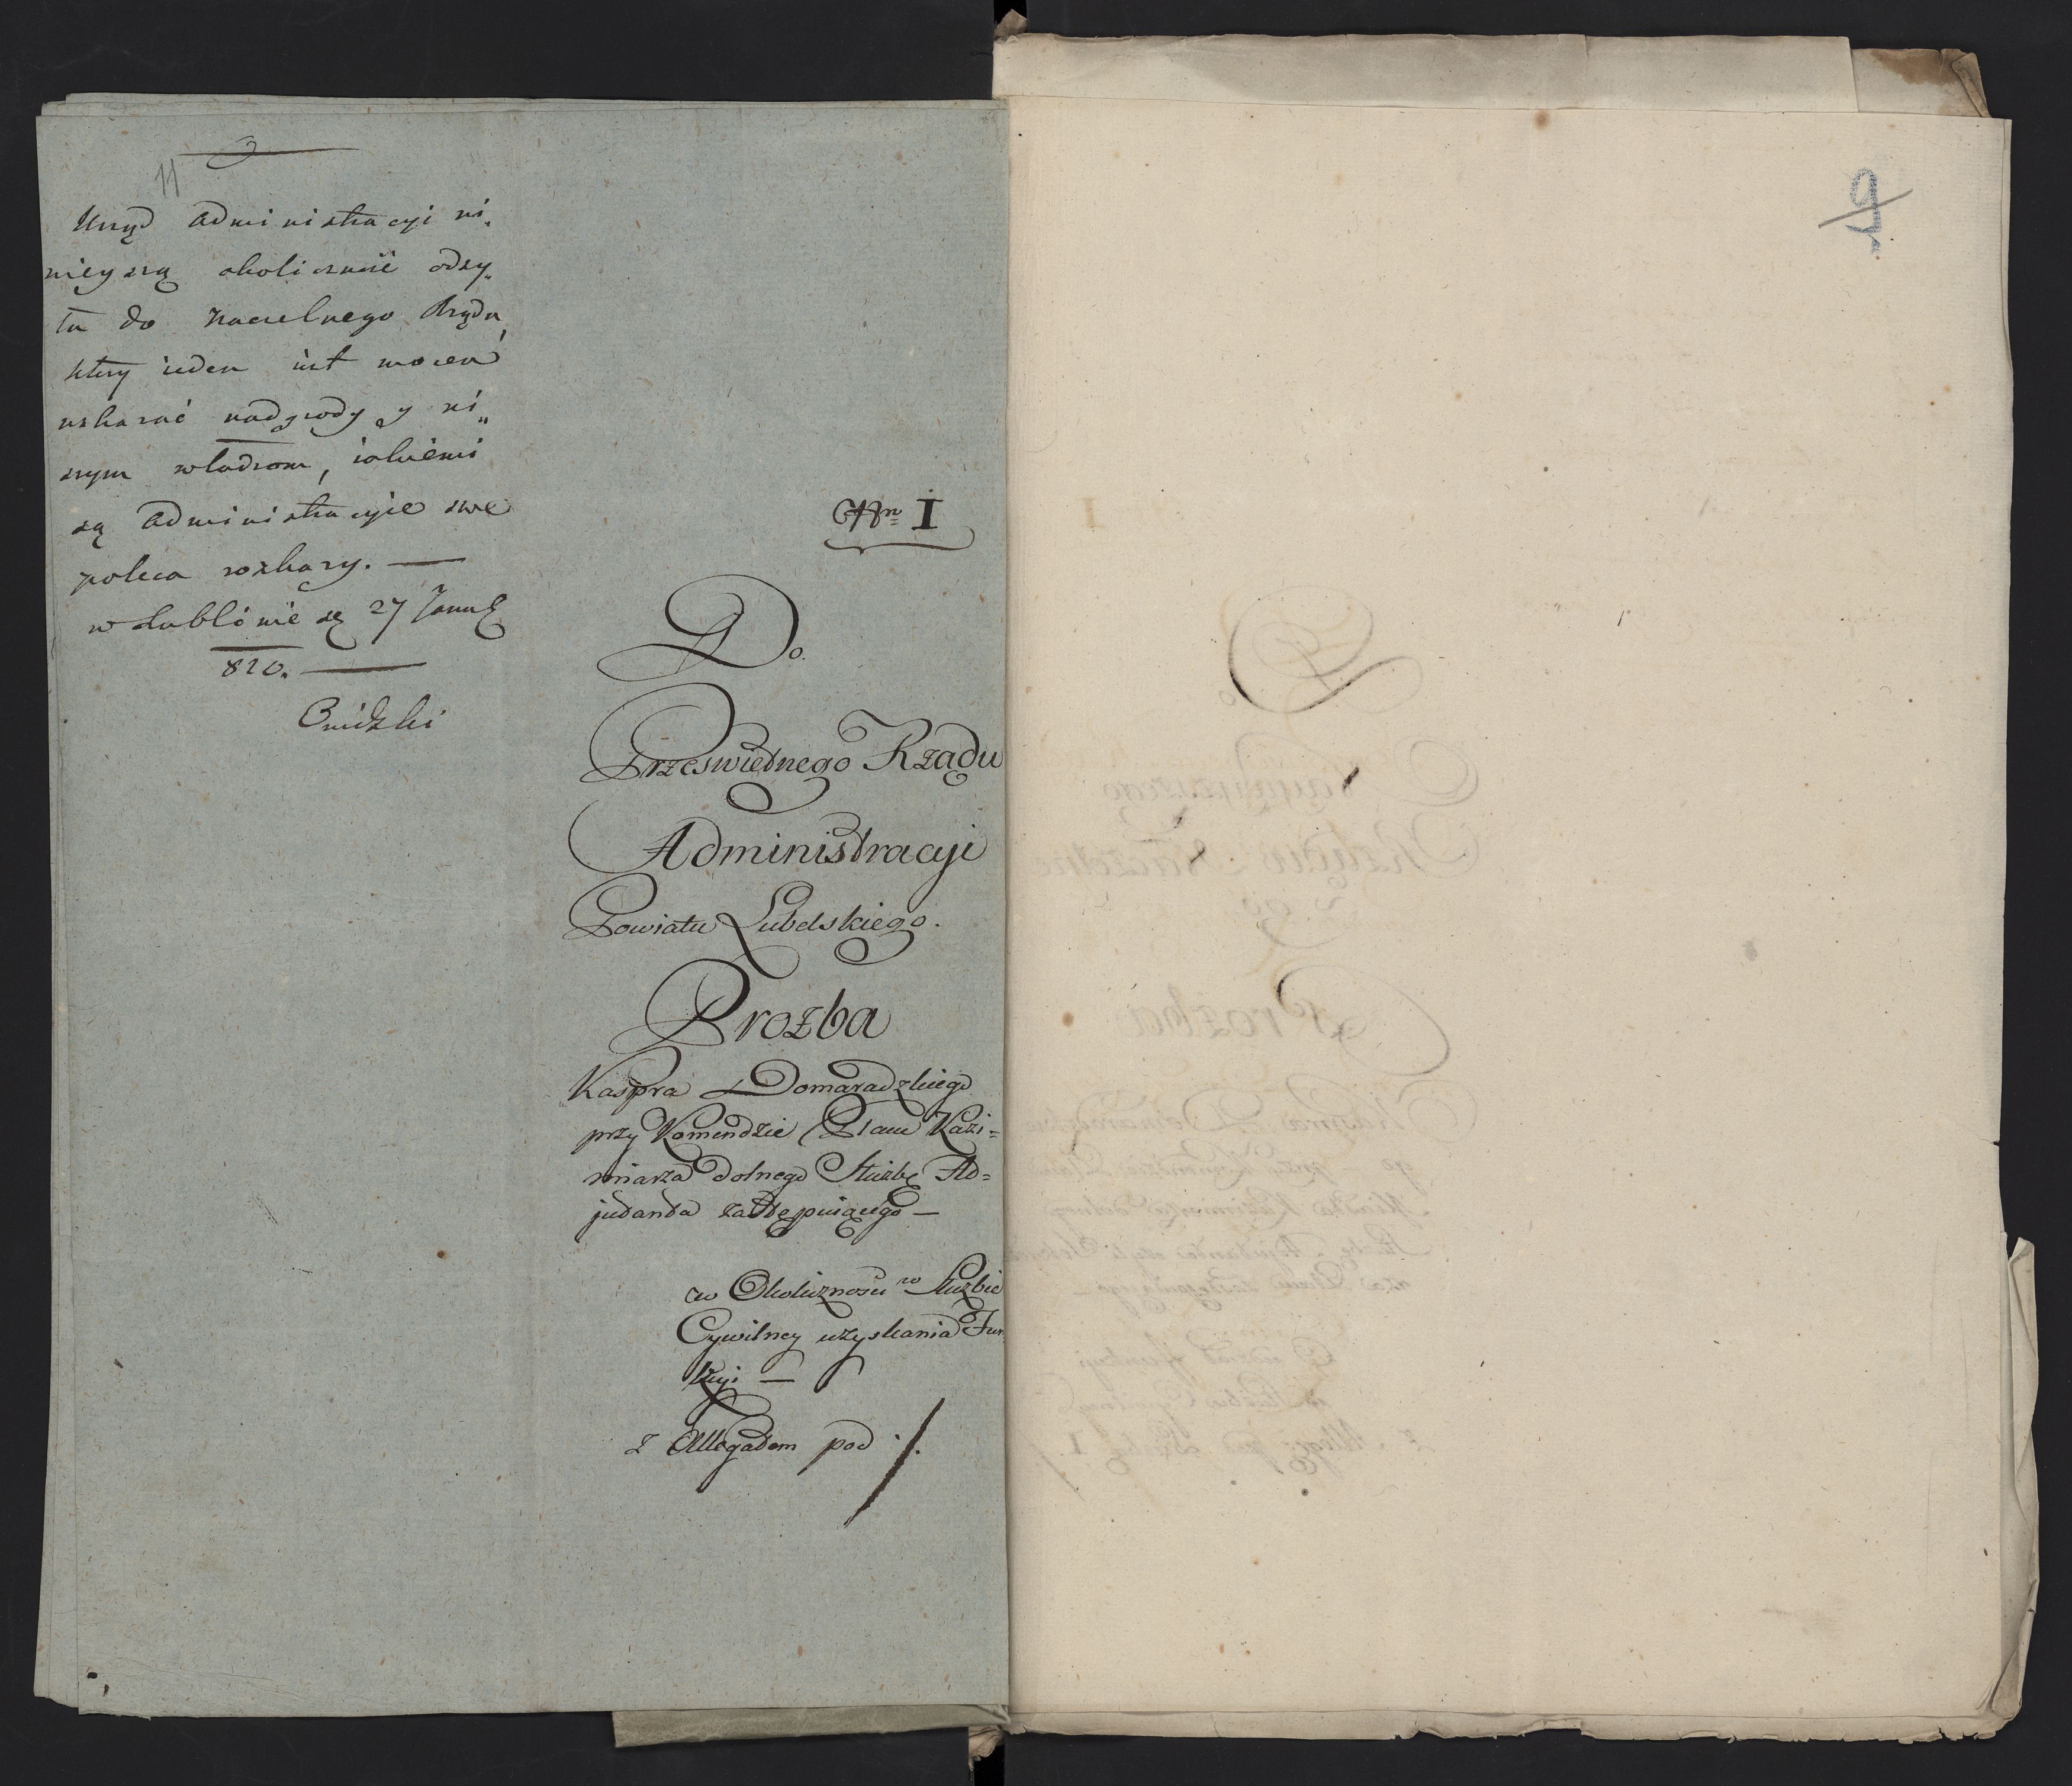 11
Urząd Administracyi ni„
nieyszą okoliczność odsy„
ła do Naczelnego Rządu,
który ieden iest mocen
wskazać nadgrody y ni„
szym władzom, iakiemi
są Administracyie swe
poleca rozkazy. —
w Lublinie dę 27 Janu
810. —
Nrn I
Do.
Prześwietnego Rządu
Administracyi
Powiatu Lubelskiego.
Prozba
Kaspra Domaradzkiego
przy Komendzie Placu Kazi=
mierza dolnego Służbę Ad=
judanta zastępuiącego —
w Okoliczności w Służbie
Cywilney uzyskania Fun
kcyi —
z Allegatem pod ·/.
9